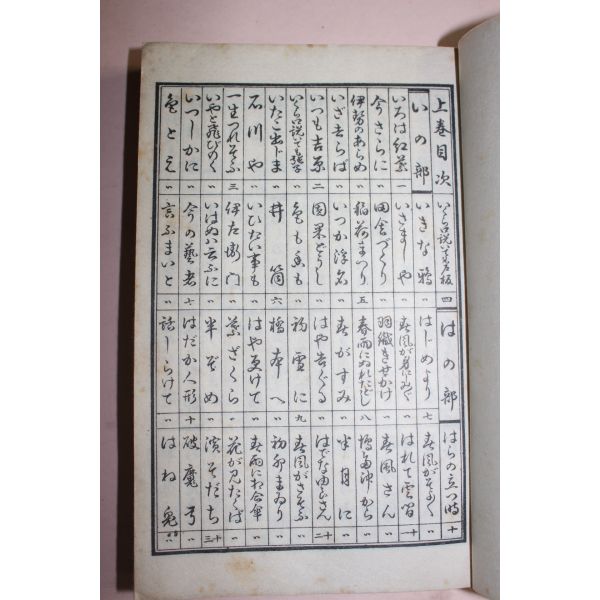 上巻目次
いの部
いろは紅葉 一
今さらに 〃
伊勢のあらめ 〃
いざさらば 〃
いつも吉原 二
いたこ出じま 〃
石川や 〃
一生つれそふ 三
いやと飛びのく 〃
いつしかに 〃
色とえ 〃
四
いきな鴉 〃
いさましや 〃
田舎づくり 〃
稲荷まつり 五
いつか浮名 〃
因果どうし 〃
色も香も 〃
井筒 六
いひたい事も 〃
伊左衛門 〃
いはぬは云ふに 〃
今の藝者 七
言ふまいと 〃
はの部
はじめより 七
春風が
羽織きせかけ 〃
春雨にぬれた 八
春がすみ 〃
はや告ぐる 〃
初雪に 九
橋本へ 〃
はや更けて 〃
葉ざくら 〃
半ぞめ 〃
はだか人形 十
話しらけて 〃
はらの立つ時 十
春風がそよ〱 〃
はれて雲間 十一
春風さん 〃
から 〃
半月に 〃
十二
春風がさそふ 〃
初卯まゐり 〃
春雨に相合傘 〃
花が見たくば 〃
濱そだち 十三
破魔弓 〃
はね兎 〃